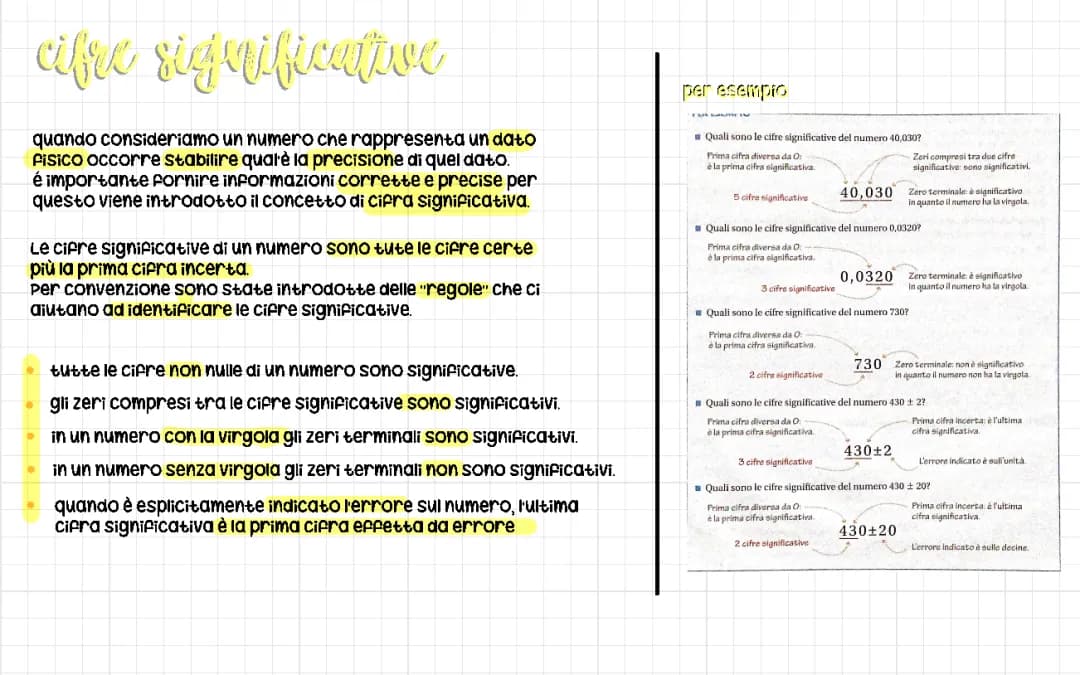 cifre significative
quando consideriamo un numero che rappresenta un dato
fisico occorre stabilire qual'è la precisione di quel dato.
é importante fornire informazioni corrette e precise per
questo viene introdotto il concetto di cifra significativa.
Le cifre significative di un numero sono tute le cifre certe
più la prima cifra incerta.
Per convenzione sono state introdotte delle "regole" che ci
aiutano ad identificare le cifre significative.
tutte le cifre non nulle di un numero sono significative.
gli zeri compresi tra le cifre significative sono significativi.
in un numero con la virgola gli zeri terminali sono significativi.
in un numero senza virgola gli zeri terminali non sono significativi.
quando è esplicitamente indicato l'errore sul numero, l'ultima
cifra significativa è la prima cifra effetta da errore
per esempio
Quali sono le cifre significative del numero 40,030?
Prima cifra diversa da 0:
è la prima cifra significativa.
Zeri compresi tra due cifre
significative: sono significativi.
5 cifre significative
40,030
Zero terminale: è significativo
in quanto il numero ha la virgola.
Quali sono le cifre significative del numero 0,0320?
Prima cifra diversa da 0:
è la prima cifra significativa.
3 cifre significative
0,0320
Zero terminale: è significativo
in quanto il numero ha la virgola.
Quali sono le cifre significative del numero 730?
Prima cifra diversa da 0:
è la prima cifra significativa.
2 cifre significative
730
Zero terminale: non è significativo
in quanto il numero non ha la virgola.
Quali sono le cifre significative del numero 430 ± 2?
Prima cifra diversa da 0:
è la prima cifra significativa.
Prima cifra incerta: è l'ultima
cifra significativa.
3 cifre significative
430±2
L'errore indicato è sull'unità.
Quali sono le cifre significative del numero 430 ± 20?
Prima cifra diversa da 0:
è la prima cifra significativa.
Prima cifra incerta: è l'ultima
cifra significativa.
2 cifre significative
430±20
L'errore indicato è sulle decine.